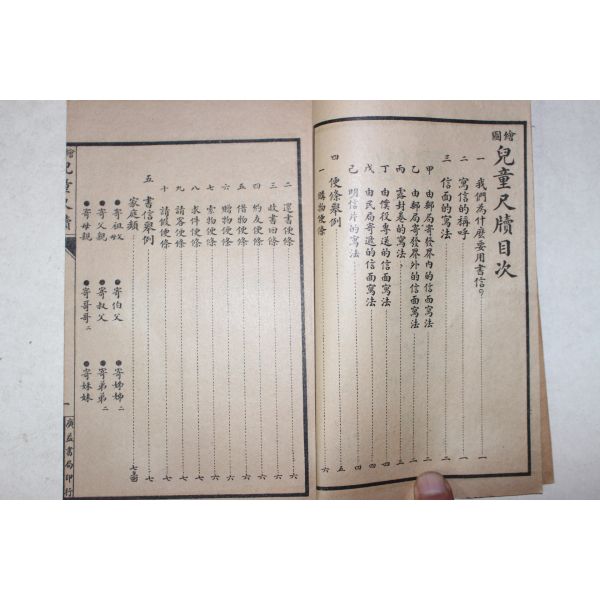 繪圖兒童尺牘目次
一 我們為什麼要用書信？ 一
二 寫信的稱呼 一
三 信面的寫法 二
甲 由郵局寄發界內的信面寫法 二
乙 由郵局寄發界外的信面寫法 二
丙 露封卷的寫法 三
丁 由僕役專送的信面寫法 四
戊 由民局寄遞的信面寫法 四
己 明信片的寫法 四
四 便條舉例 五
一 購物便條 六
二 還書便條 六
三 收書回條 六
四 約友便條 六
五 借物便條 六
六 贈物便條 六
七 索物便條 六
八 求件便條 七
九 請客便條 七
十 請假便條 七
五 書信舉例 七
家庭類
●寄祖母 ●寄伯父 ●寄姊姊二
●寄父親 ●寄叔父 ●寄弟弟二
●寄母親 ●寄哥哥二 ●寄妹妹
兒童尺牘
一
廣益書局印行